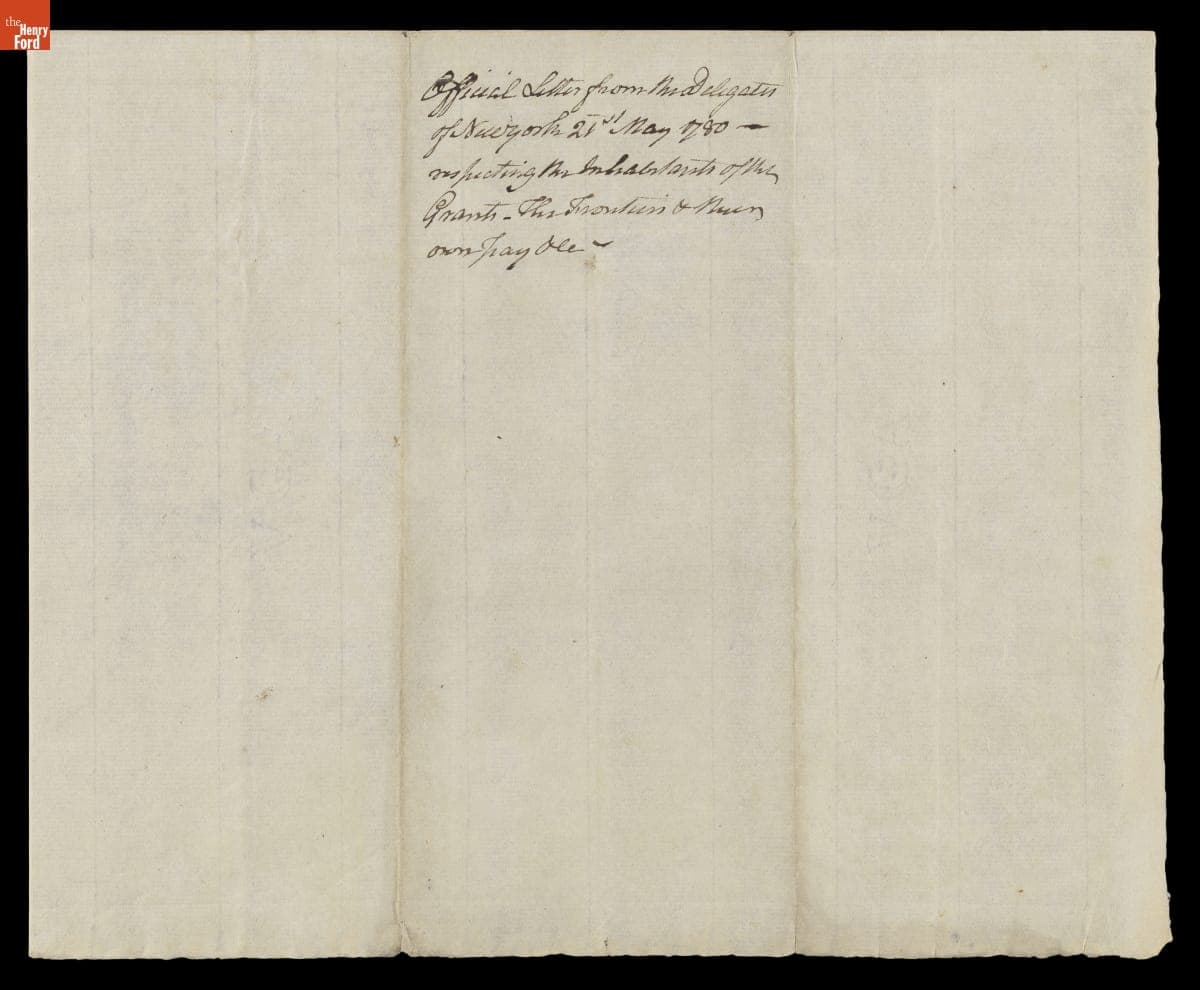 the
Henry
Ford
Official Letter from the Delegates
of Newyork 21st May 1780 —
respecting the Inhabitants of the
Grants - The Frontiers &
own pay &c —